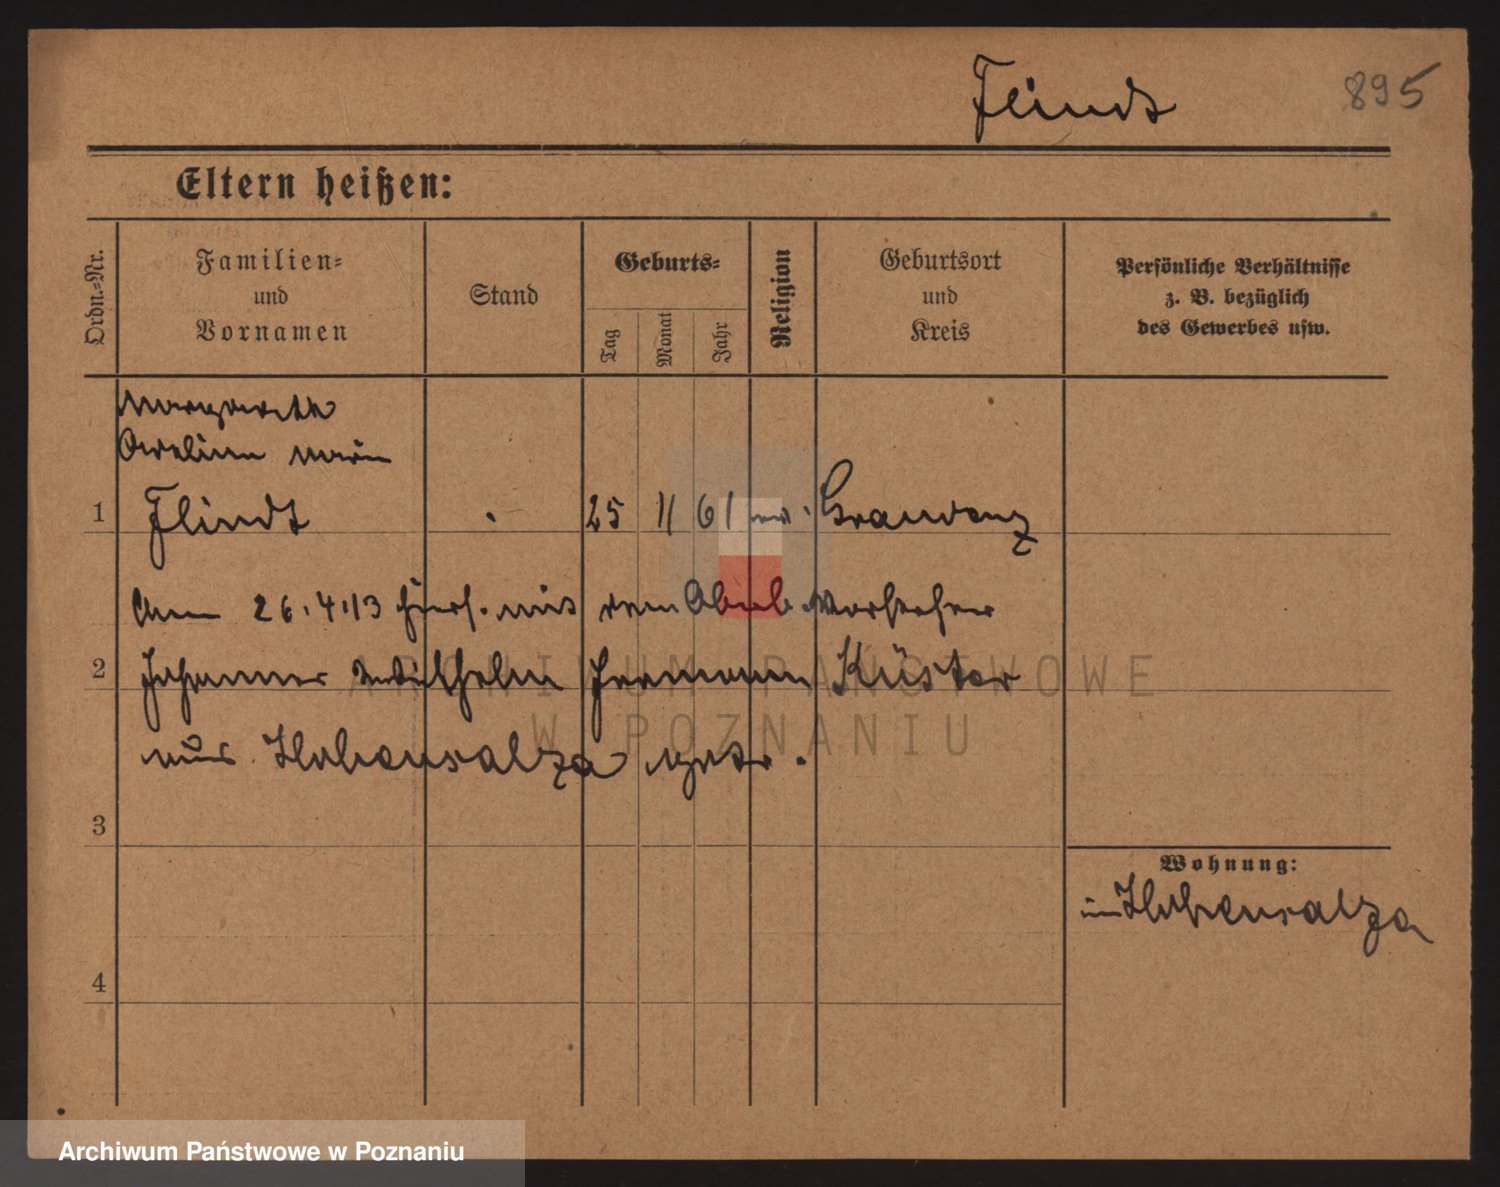 Flindt 895
Eltern heißen:
Ordn.-Nr.
Familien-
und
Vornamen
Stand
Geburts-
Tag
Monat
Jahr
Religion
Geburtsort
und
Kreis
Persönliche Verhältnisse
z. B. bezüglich
des Gewerbes usw.
Margarethe
Marie
1 Flindt 25 11 61 ev. Graudenz
Am 26.4.13 hiers. mit dem Vorsteher
2 Johannes Wilhelm Hermann Küster
aus Hohensalza getr.
3
Wohnung:
in Hohensalza
4
ARCHIWUM PAŃSTWOWE
W POZNANIU
Archiwum Państwowe w Poznaniu